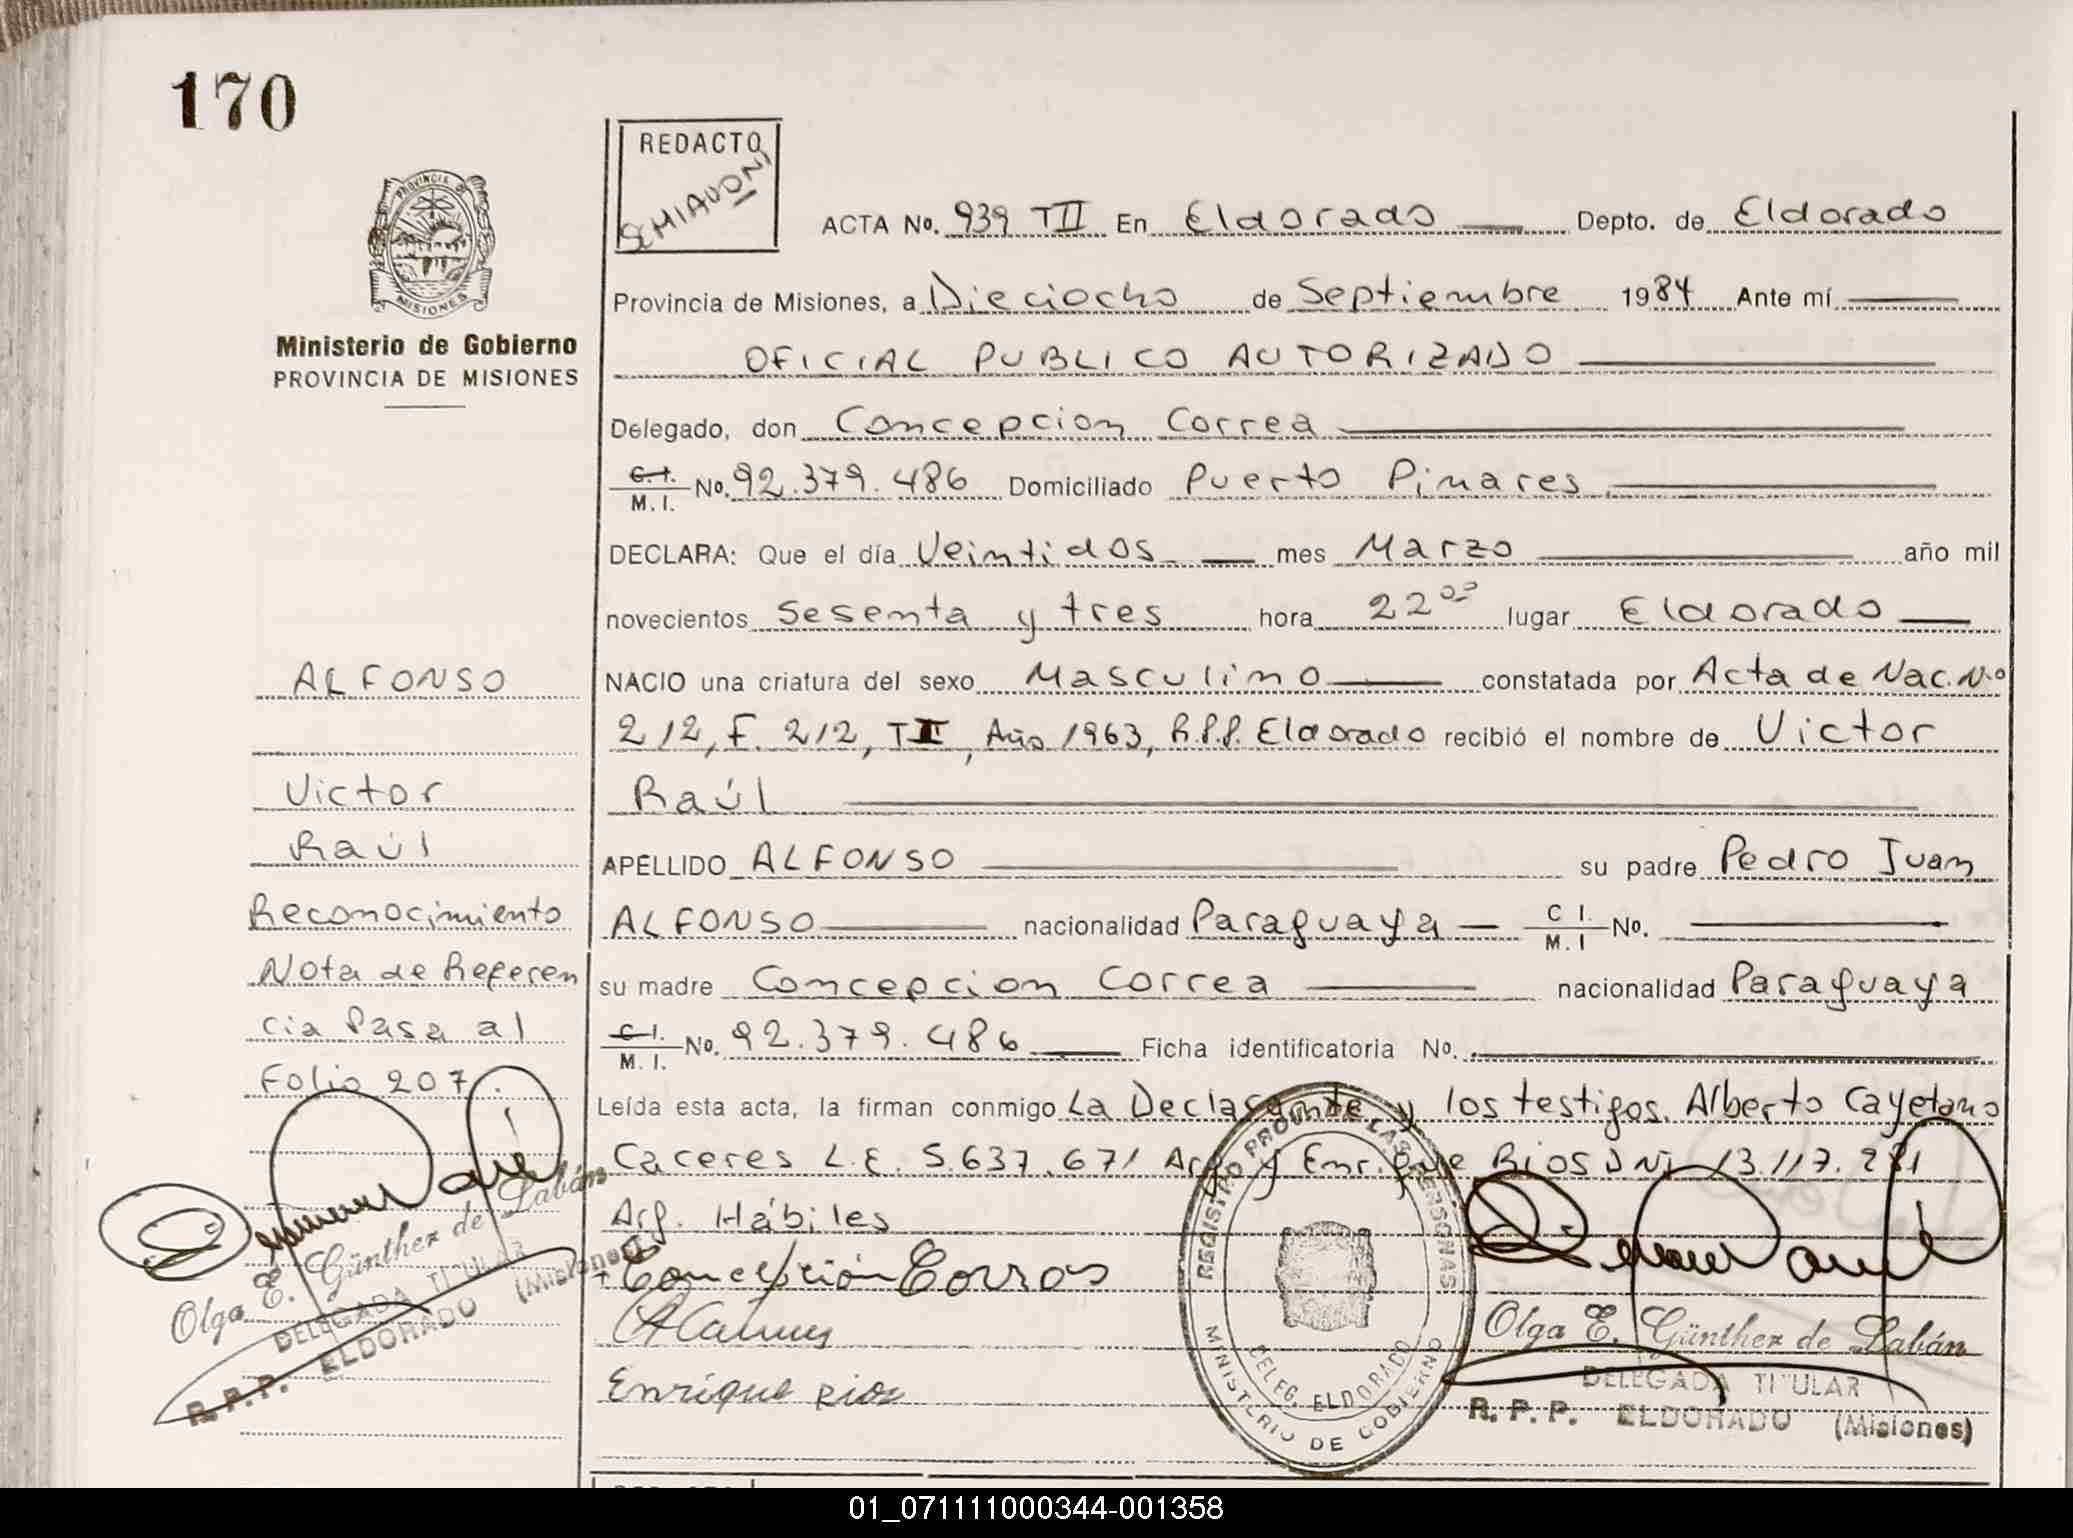 170
REDACTO
SCHIAVONI
PROVINCIA DE
MISIONES
Ministerio de Gobierno
PROVINCIA DE MISIONES
ACTA No. 939 TII En Eldorado Depto. de Eldorado
Provincia de Misiones, a Dieciocho de Septiembre 1984 Ante mí
OFICIAL PUBLICO AUTORIZADO
Delegado, don Concepcion Correa
C.I. / M.I. No. 92.379.486 Domiciliado Puerto Pinares
DECLARA: Que el día Veintidos mes Marzo año mil
novecientos Sesenta y tres hora 22⁰⁰ lugar Eldorado
NACIO una criatura del sexo Masculino constatada por Acta de Nac. Nº
212, F. 212, TII, Año 1963, R.P.P. Eldorado recibió el nombre de Victor
Raúl
APELLIDO ALFONSO su padre Pedro Juan
ALFONSO nacionalidad Paraguaya C I. / M. I No.
su madre Concepcion Correa nacionalidad Paraguaya
C.I. / M. I. No. 92.379.486 Ficha identificatoria No.
Leída esta acta, la firman conmigo La Declarante y los testigos. Alberto Cayetano
Caceres L.E. 5.637.671 Arg. y Enrique Rios DNI 13.117.281
Arg. Hábiles
Concepción Corros
Enrique Rios
ALFONSO
Victor
Raúl
Reconocimiento
Nota de Referen
cia Pasa al
Folio 207.
Olga E. Günther de Labán
DELEGADA TITULAR
R.P.P. ELDORADO (Misiones)
REGISTRO PROV. DE LAS PERSONAS
DELEG. ELDORADO
MINISTERIO DE GOBIERNO
Olga E. Günther de Labán
DELEGADA TITULAR
R. P. P. ELDORADO (Misiones)
01_071111000344-001358